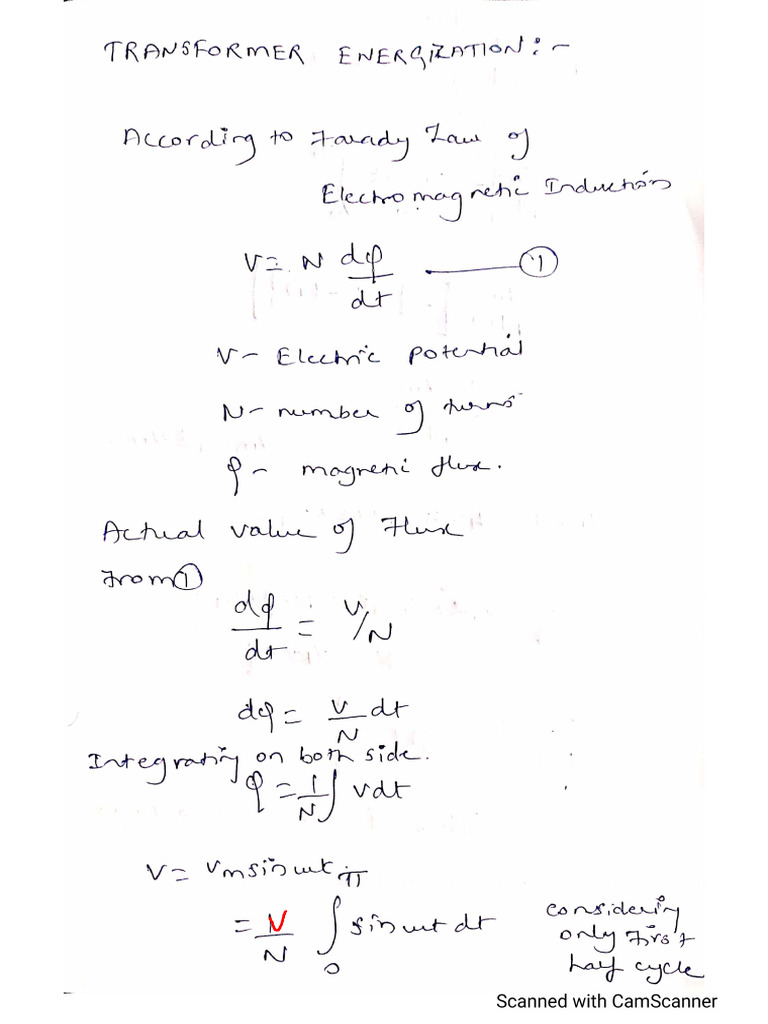 TRANSFORMER ENERGIZATION:-
According to Farady Law of
Electromagnetic Induction
V = N dφ/dt ——— ①
V- Electric potential
N- number of turns
φ- magnetic flux.
Actual value of Flux
From ①
dφ/dt = V/N
dφ = V/N dt
Integrating on both side.
φ = 1/N ∫ vdt
V = Vm sin ωt
= V/N ∫₀^π sin ωt dt considering only first half cycle
Scanned with CamScanner